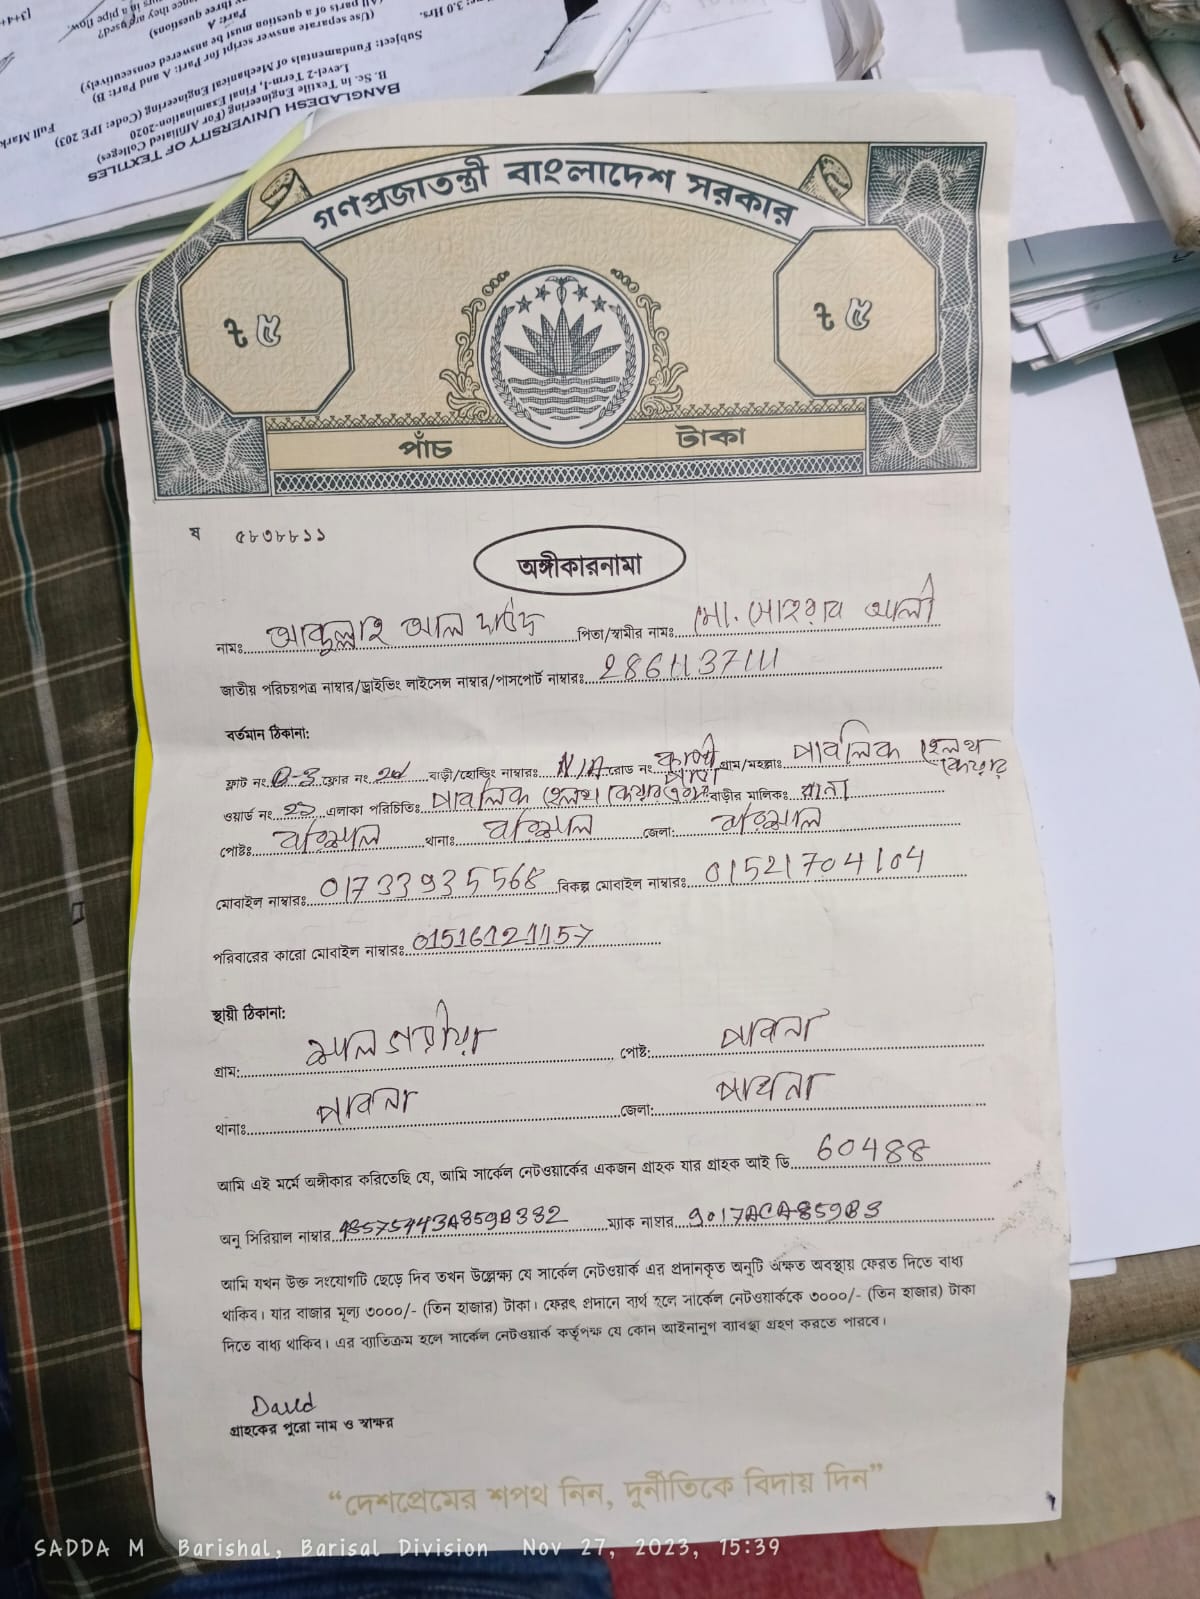 BANGLADESH UNIVERSITY OF TEXTILES
B. Sc. In Textile Engineering (For Affiliated Colleges)
Level-2 Term-I, Final Examination-2020
Subject: Fundamentals of Mechanical Engineering (Code: IPE 203)
3.0 Hrs.
Full Mark
(Use separate answer script for Part: A and Part: B)
Part: A
গণপ্রজাতন্ত্রী বাংলাদেশ সরকার
৳ ৫
৳ ৫
পাঁচ টাকা
ষ ৫৮৩৮৮১১
অঙ্গীকারনামা
নামঃ আব্দুল্লাহ আল দাউদ পিতা/স্বামীর নামঃ মো. সোহরাব আলী
জাতীয় পরিচয়পত্র নাম্বার/ড্রাইভিং লাইসেন্স নাম্বার/পাসপোর্ট নাম্বারঃ 2861137111
বর্তমান ঠিকানা:
ফ্লাট নং B-3 ফ্লোর নং 2nd বাড়ী/হোল্ডিং নাম্বারঃ N/A রোড নং গ্রাম/মহল্লাঃ পাবলিক হেলথ কেয়ার
ওয়ার্ড নং এলাকা পরিচিতিঃ পাবলিক হেলথ কেয়ার বাড়ীর মালিকঃ রানা
পোষ্টঃ বরিশাল থানাঃ বরিশাল জেলা: বরিশাল
মোবাইল নাম্বারঃ 01733935568 বিকল্প মোবাইল নাম্বারঃ 01521704104
পরিবারের কারো মোবাইল নাম্বারঃ 01516121157
স্থায়ী ঠিকানা:
গ্রাম: শালগাড়ীয়া পোষ্ট: পাবনা
থানাঃ পাবনা জেলা: পাবনা
আমি এই মর্মে অঙ্গীকার করিতেছি যে, আমি সার্কেল নেটওয়ার্কের একজন গ্রাহক যার গ্রাহক আই ডি 60488
অনু সিরিয়াল নাম্বার 48575443A859B332 ম্যাক নাম্বার 9017ACA859B3
আমি যখন উক্ত সংযোগটি ছেড়ে দিব তখন উল্লেক্ষ্য যে সার্কেল নেটওয়ার্ক এর প্রদানকৃত অনুটি অক্ষত অবস্থায় ফেরত দিতে বাধ্য
থাকিব। যার বাজার মূল্য ৩০০০/- (তিন হাজার) টাকা। ফেরৎ প্রদানে ব্যর্থ হলে সার্কেল নেটওয়ার্ককে ৩০০০/- (তিন হাজার) টাকা
দিতে বাধ্য থাকিব। এর ব্যাতিক্রম হলে সার্কেল নেটওয়ার্ক কর্তৃপক্ষ যে কোন আইনানুগ ব্যাবস্থা গ্রহণ করতে পারবে।
Daud
গ্রাহকের পুরো নাম ও স্বাক্ষর
“দেশপ্রেমের শপথ নিন, দুর্নীতিকে বিদায় দিন”
SADDA M Barishal, Barisal Division Nov 27, 2023, 15:39